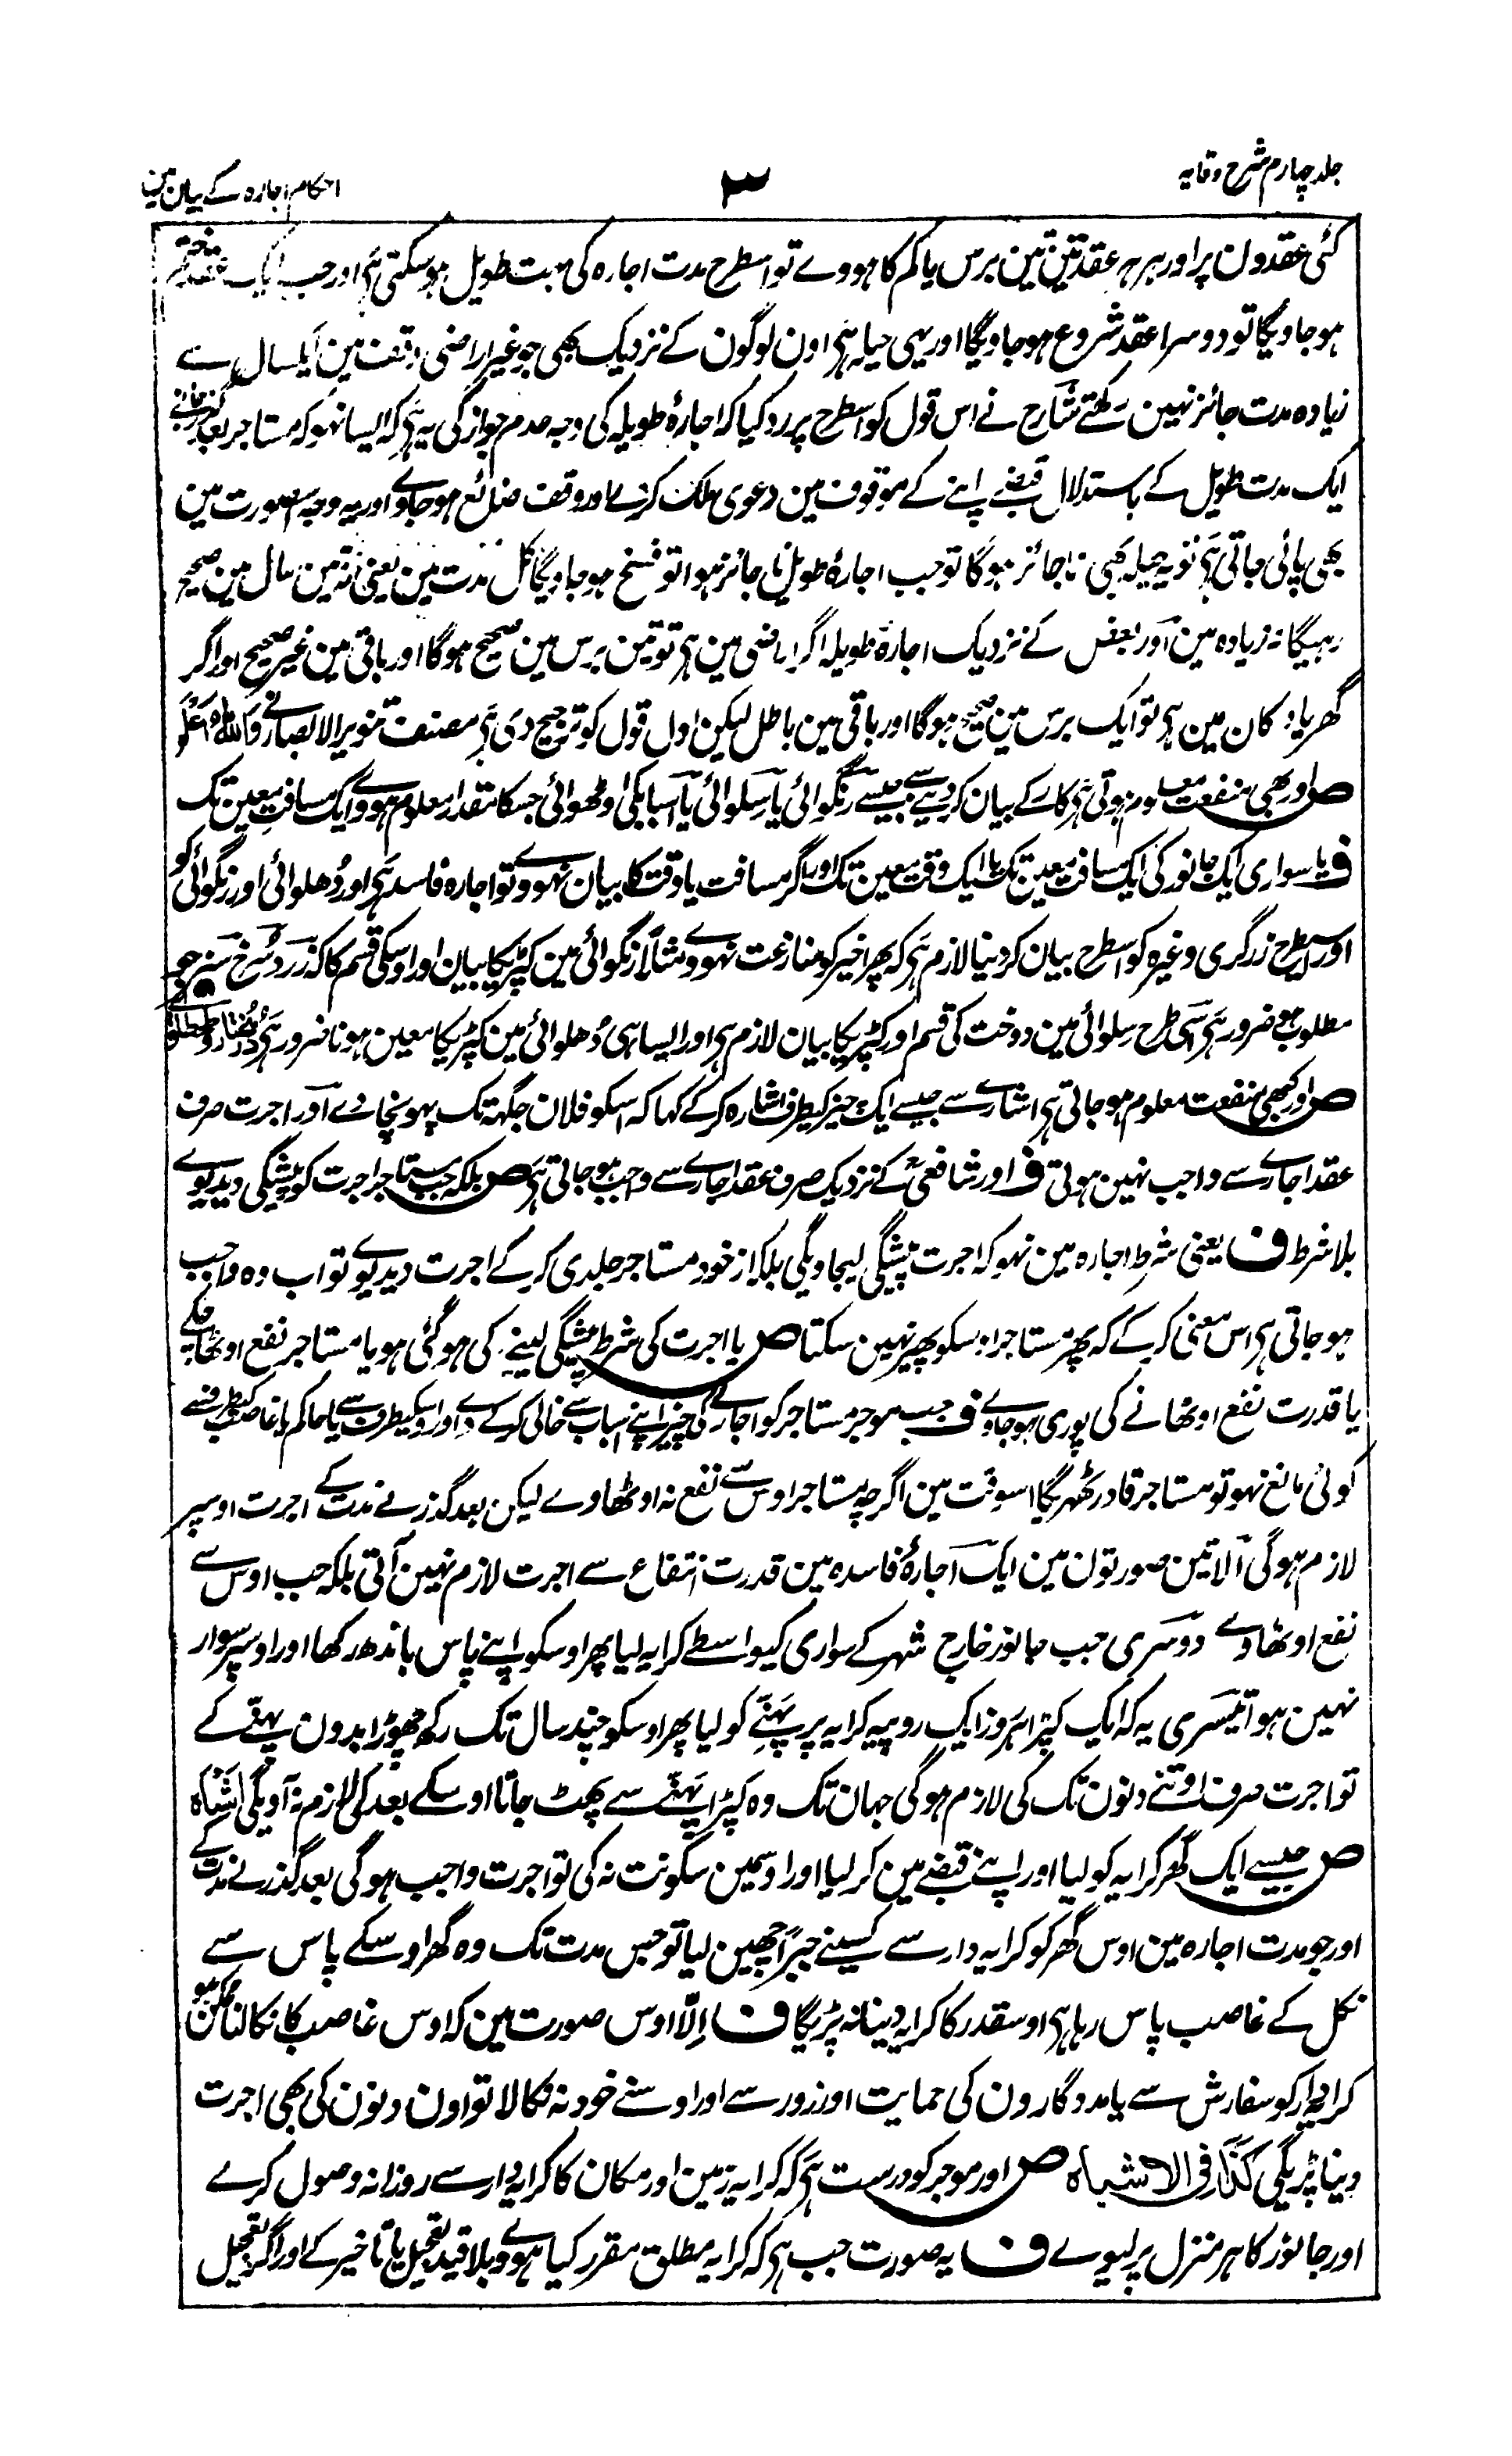 جلد چہارم شرح وقایہ
۳
احکام اجارہ کے بیان مین
کئی عقدون پر اور ہر ہر عقد تین تین برس یا کم کا ہووے تو اسطرح مدت اجارہ کی بہت طویل ہو سکتی ہی اور جب ایک عقد ختم
ہو جاویگا تو دوسرا عقد شروع ہو جاویگا اور یہی حیلہ ہی اون لوگون کے نزدیک بھی جو غیر اراضی وقف مین ایکسال سے
زیادہ مدت جائز نہین رکھتے شارح نے اس قول کو اسطرح پر رد کیا کہ اجارۂ طویلہ کی وجہ عدم جواز کی یہ ہی کہ ایسا نہو کہ مستاجر بعد گذر جانے
ایک مدت طویل کے باستدلال قبضے اپنے کے موقوف مین دعوی ملک کرے اور وقف ضائع ہو جاوے اور یہ وجہ اس صورت مین
بھی پائی جاتی ہی تو یہ حیلہ بھی ناجائز ہوگا تو جب اجارۂ طویل ناجائز ہوا تو فسخ ہو جاویگا کل مدت مین یعنی نہ تین سال مین صحیح
رہیگا نہ زیادہ مین اور بعض کے نزدیک اجارۂ طویلہ اگر اراضی مین ہی تو تین برس مین صحیح ہوگا اور باقی مین غیر صحیح اور اگر
گھر یا دکان مین ہی تو ایک برس مین صحیح ہوگا اور باقی مین باطل لیکن اول قول کو ترجیح دی ہی مصنف تنویر الابصار نے واللہ اعلم
ص اور کبھی منفعت معلوم ہوتی ہی کار کے بیان کر دینے سے جیسے رنگوائی یا سلوائی یا اسباب کی اوٹھوائی جسکا مقدار معلوم ہووے ایک مسافت معین تک
ف یا سواری ایک جانور کی ایک مسافت معین تک یا ایک وقت معین تک اور اگر مسافت یا وقت کا بیان نہووے تو اجارہ فاسد ہی اور دُھلوائی اور رنگوائی کو
اور اسیطرح زرگری وغیرہ کو اسطرح بیان کر دینا لازم ہی کہ پھر اخیر کو منازعت نہووے مثلاً رنگوائی مین کپڑیکا بیان اور اوسکی قسم کا کہ زرد سرخ سبز جو
مطلوب ہو ضرور ہی اسی طرح سِلوائی مین دوخت کی قسم اور کپڑیکا بیان لازم ہی اور ایسا ہی دُھلوائی مین کپڑیکا معین ہونا ضرور ہی دُرمختار و طحطاوی
ص اور کبھی منفعت معلوم ہو جاتی ہی اشارے سے جیسے ایک چیز کیطرف اشارہ کرکے کہا کہ اسکو فلان جگہ تک پہونچادے اور اجرت صرف
عقد اجارے سے واجب نہین ہوتی ف اور شافعیؒ کے نزدیک صرف عقد اجارے سے واجب ہو جاتی ہی ص بلکہ جب مستاجر اجرت کو پیشگی دیدیوے
بلا شرط ف یعنی شرط اجارہ مین نہو کہ اجرت پیشگی لیجاویگی بلکہ از خود مستاجر جلدی کرکے اجرت دیدیوے تو اب وہ واجب
ہو جاتی ہی اس معنی کرکے کہ پھر مستاجر اوسکو پھیر نہین سکتا ص یا اجرت کی شرط پیشگی لینے کی ہو گئی ہو یا مستاجر نفع اوٹھا چکے
یا قدرت نفع اوٹھانے کی پوری ہو جاوے ف جب موجر مستاجر کو اجارے کی چیز اپنے اسباب سے خالی کرکے دے اور اوسکیطرف سے یا حاکم یا غاصب کیطرف سے
کوئی مانع نہو تو مستاجر قادر ٹھہریگا اسوقت مین اگرچہ مستاجر اوس سے نفع نہ اوٹھاوے لیکن بعد گذرنے مدت کے اجرت اوسپر
لازم ہوگی الا تین صورتون مین ایک اجارۂ فاسدہ مین قدرت انتفاع سے اجرت لازم نہین آتی بلکہ جب اوس سے
نفع اوٹھاوے دوسری جب جانور خارج شہر کے سواری کیواسطے کرایہ لیا پھر اوسکو اپنے پاس باندھ رکھا اور اوسپر سوار
نہین ہوا تیسری یہ کہ ایک کپڑا ہر روز ایک روپیہ کرایہ پر پہننے کو لیا پھر اوسکو چند سال تک رکھ چھوڑا بدون پہننے کے
تو اجرت صرف اوتنے دنون تک کی لازم ہوگی جہان تک وہ کپڑا پہننے سے پھٹ جاتا اوسکے بعد کی لازم نہ آویگی اشباہ
ص جیسے ایک گھر کرایہ کو لیا اور اپنے قبضے مین کر لیا اور اوسمین سکونت نہ کی تو اجرت واجب ہوگی بعد گذرنے مدت کے
اور جو مدت اجارہ مین اوس گھر کو کرایہ دار سے کسینے جبراً چھین لیا تو جس مدت تک وہ گھر اوسکے پاس سے
نکل کے غاصب پاس رہا ہی اوسقدر کا کرایہ دینا نہ پڑیگا ف اِلّا اوس صورت مین کہ اوس غاصب کا نکالنا ممکن ہو
کرایہ دار کو سفارش سے یا مددگارون کی حمایت اور زور سے اور اوسنے خود نہ نکالا تو اون دنون کی بھی اجرت
دینا پڑیگی کذا فی الاشباہ ص اور موجر کو درست ہی کہ کرایہ زمین اور مکان کا کرایہ دار سے روزانہ وصول کرے
اور جانور کا ہر منزل پر لیوے ف یہ صورت جب ہی کہ کرایہ مطلق مقرر کیا ہووے بلا قید تعجیل یا تاخیر کے اور اگر تعجیل